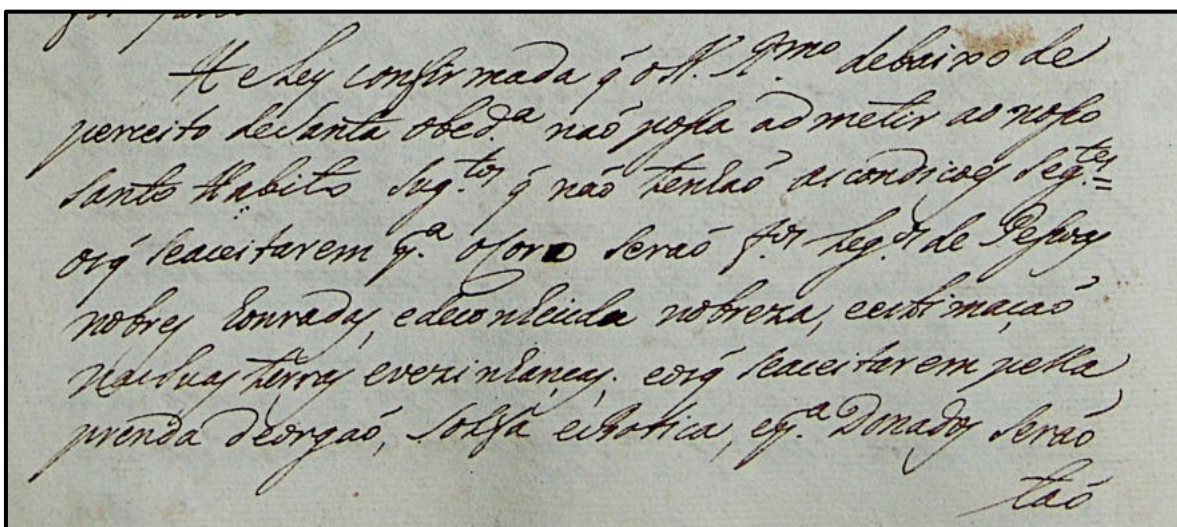 He Ley confirmada q̃ o N. R.mo debaixo de
perceito de Santa obed.a naõ possa admetir ao nosso
Santo Habito Sug.tos q̃ naõ tenhaõ as condicoẽs seg.tes=
osq̃ seaceitarem p.a o Coro seraõ f.os Leg.os de Pessoas
nobres honradas, edeconhecida nobreza, eestimaçaõ
nasSuas terras evezinhanças; eosq̃ seaceitarem pella
prenda deorgaõ, Solfa ebotica, ep.a Donados seraõ
taõ